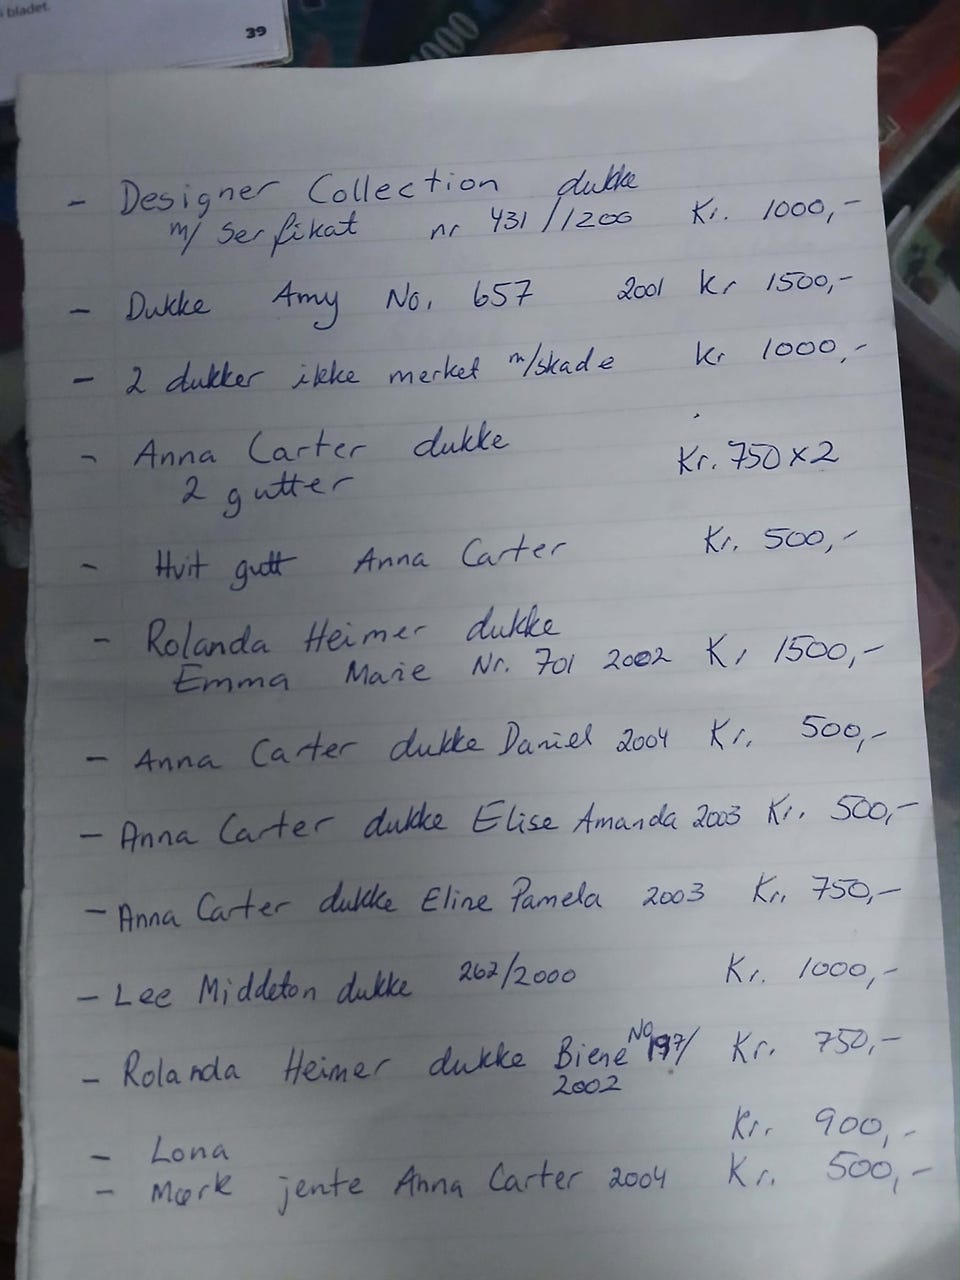 bladet.
39
1000
- Designer Collection dukke
m/ Serfikat nr 431/1200 Kr. 1000,-
- Dukke Amy No. 657 2001 Kr 1500,-
- 2 dukker ikke merket m/skade Kr 1000,-
- Anna Carter dukke
2 gutter Kr. 750 x 2
- Hvit gutt Anna Carter Kr. 500,-
- Rolanda Heimer dukke
Emma Marie Nr. 701 2002 Kr 1500,-
- Anna Carter dukke Daniel 2004 Kr. 500,-
- Anna Carter dukke Elise Amanda 2003 Kr. 500,-
- Anna Carter dukke Eline Pamela 2003 Kr. 750,-
- Lee Middeton dukke 262/2000 Kr. 1000,-
- Rolanda Heimer dukke Biene No 197/ Kr. 750,-
2002
- Lona Kr. 900,-
- Mørk jente Anna Carter 2004 Kr. 500,-